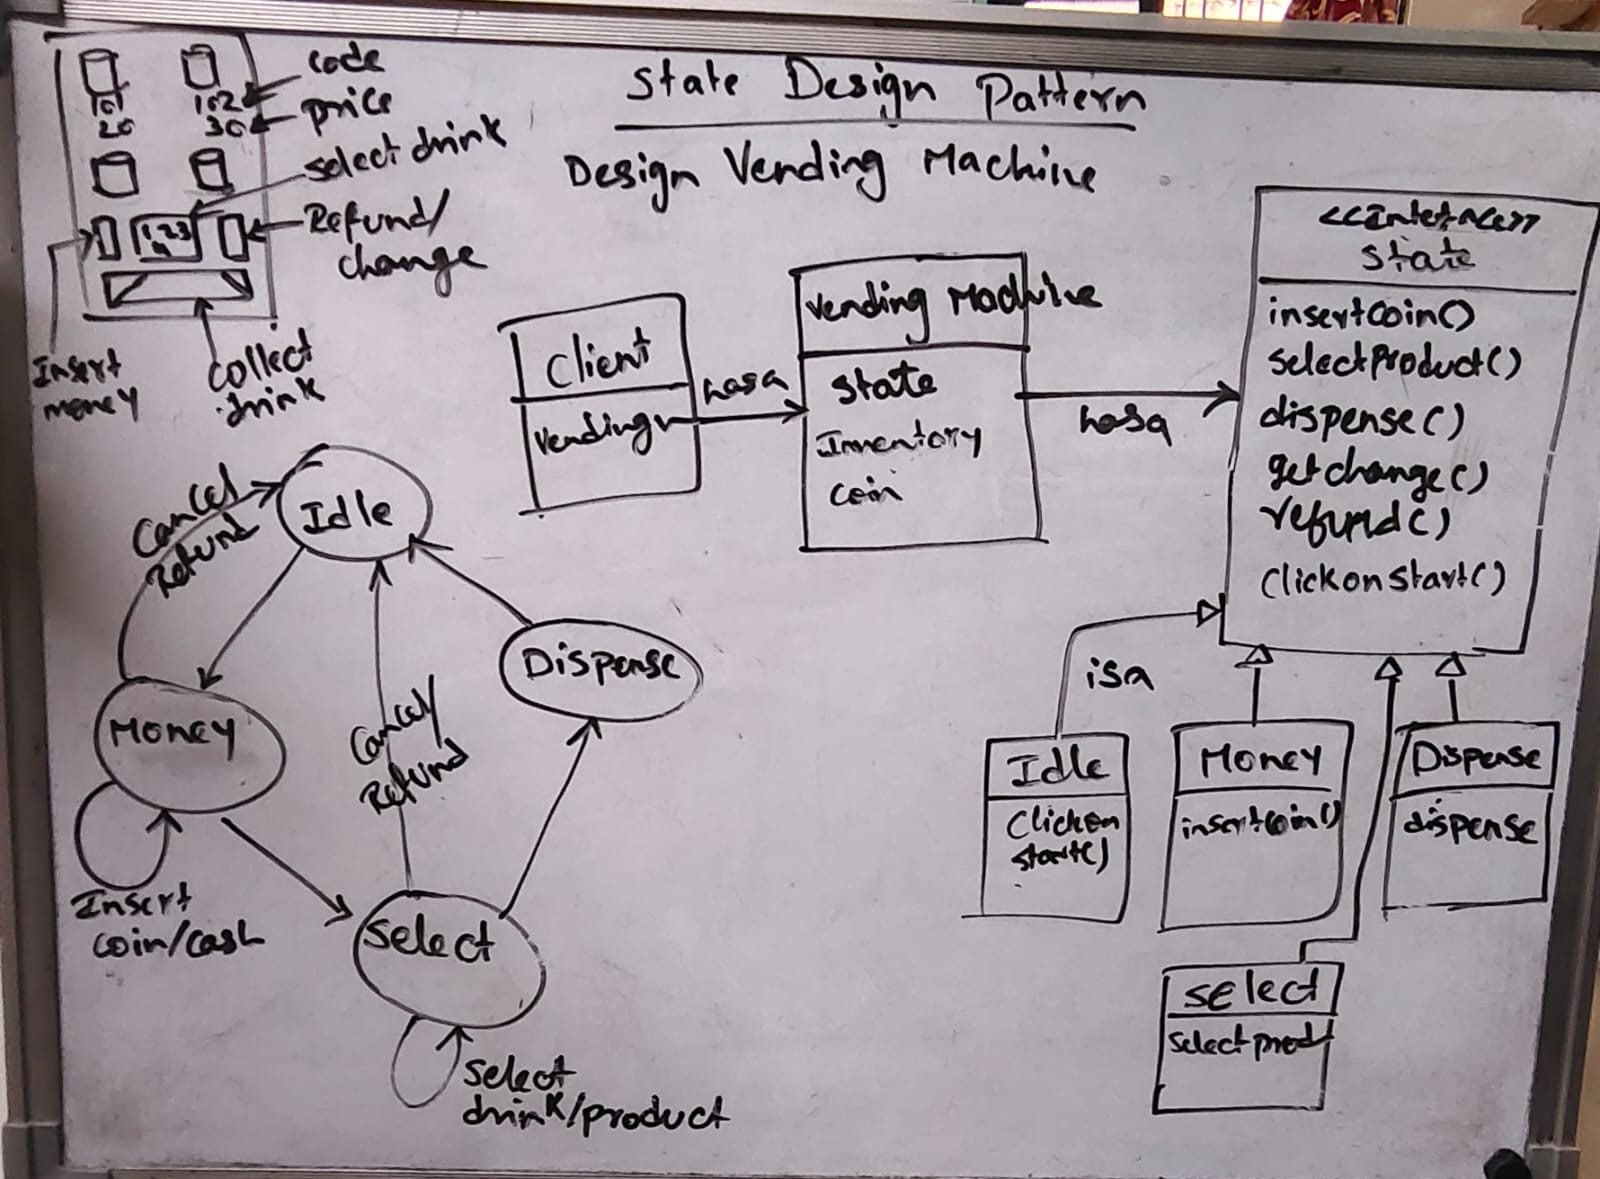 State Design Pattern
Design Vending Machine
101
102
code
20
30
price
select drink
123
Refund/
change
Insert
money
collect
drink
Client
Vending
hasa
Vending Machine
State
Inventory
Coin
hasa
<<Interface>>
State
insertCoin()
selectProduct()
dispense()
getchange()
refund()
clickonstart()
isa
Idle
Clickon
start()
Money
insertcoin()
Dispense
dispense
Select
Select prod
Idle
Cancel
Refund
Money
Insert
coin/cash
Cancel/
Refund
Dispense
Select
Select
drink/product